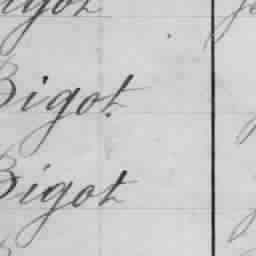 Bigot
Bigot.
Bigot